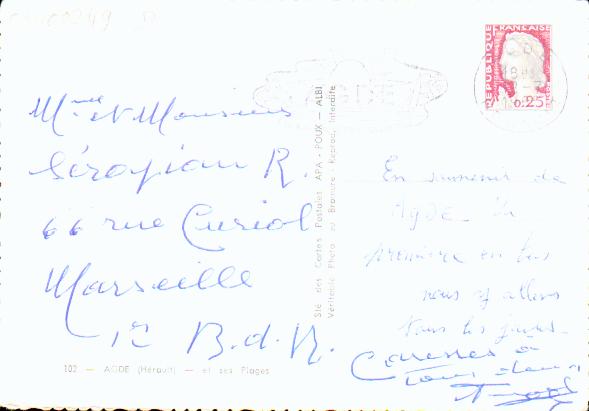 Mme et Monsieur
Sérapian R.
66 rue Curiol
Marseille
1er B.d.R.
102 — AGDE (Hérault) — et ses Plages
Sté des Cartes Postales APA - POUX - ALBI
Véritable Photo au Bromure - Reprod. interdite
RÉPUBLIQUE FRANÇAISE
0,25
AGDE
En souvenir de
AGDE
première en bas
nous y allons
tous les jours
Caresses à
tous deux